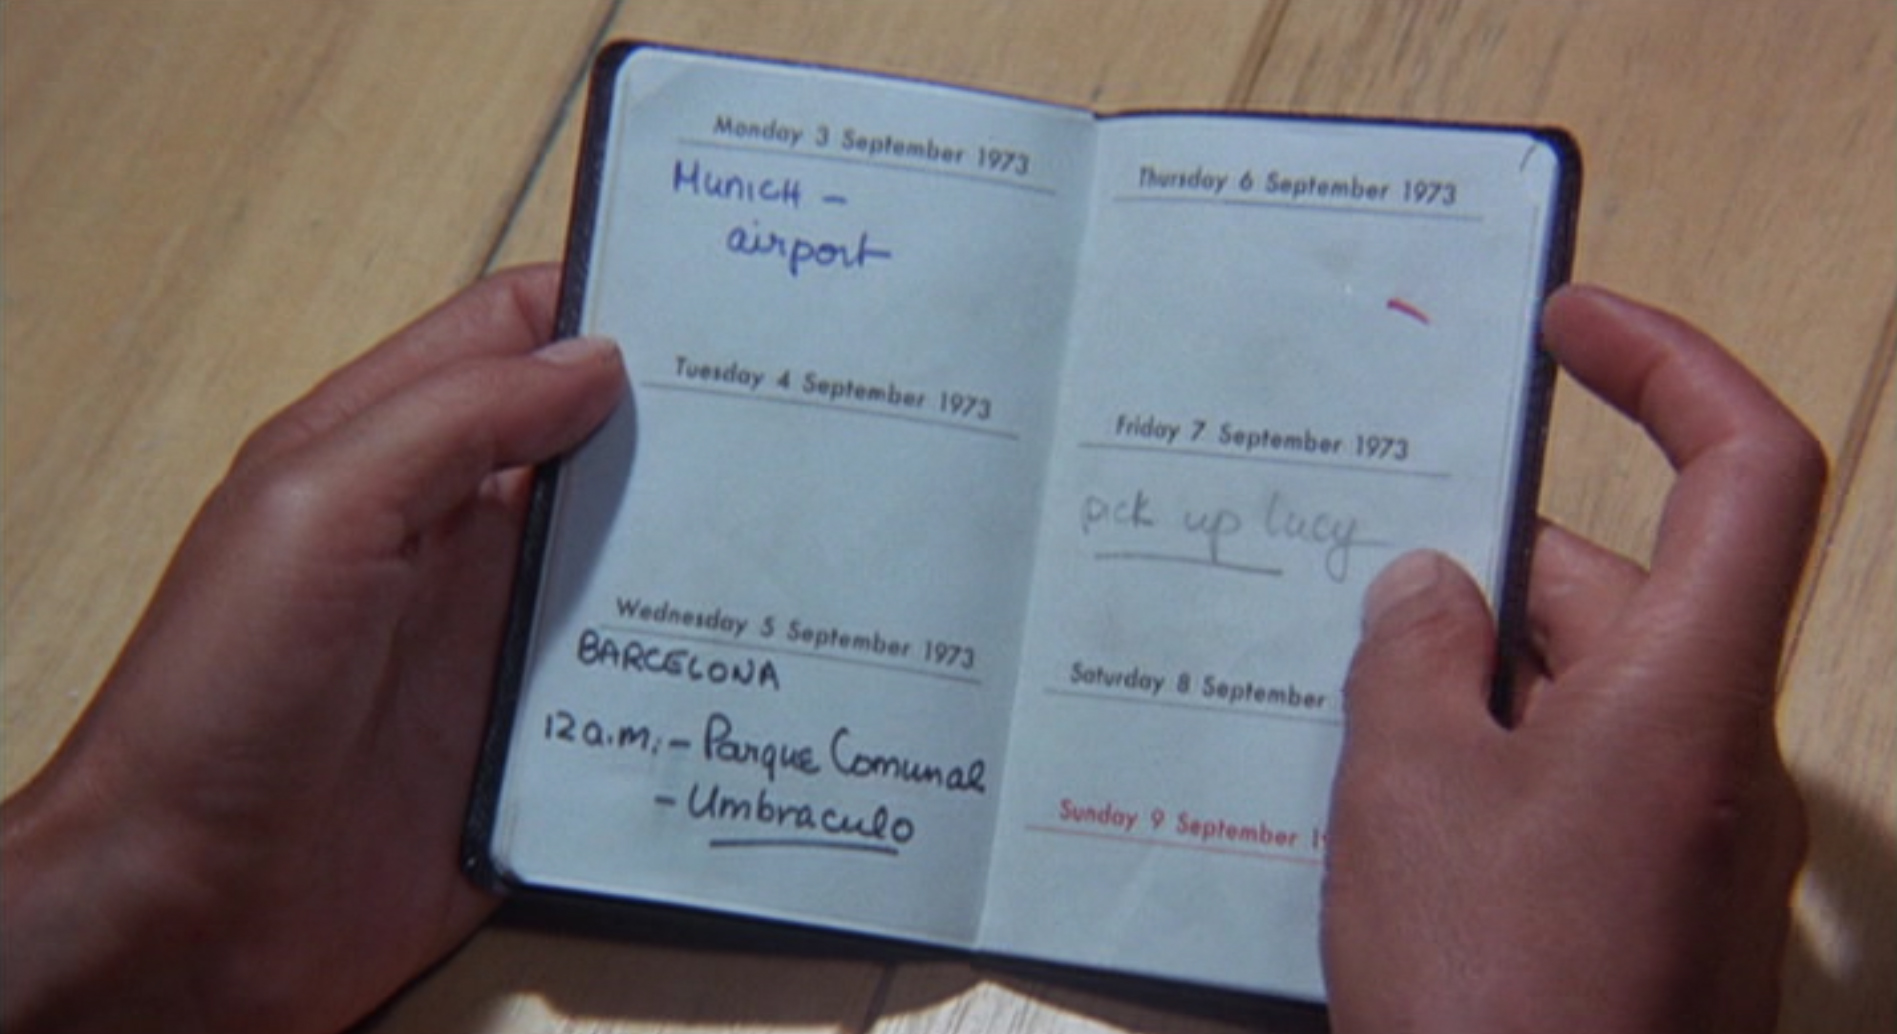 Monday 3 September 1973
Munich -
airport
Tuesday 4 September 1973
Wednesday 5 September 1973
BARCELONA
12 a.m.: - Parque Comunal
- Umbraculo
Thursday 6 September 1973
Friday 7 September 1973
pick up lucy
Saturday 8 September
Sunday 9 September 1